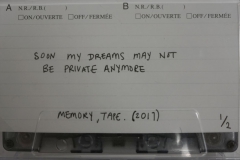 A N.R./R.B.( ) B N.R./R.B.( )
☐ON/OUVERTE ☐OFF/FERMÉE ☐ON/OUVERTE ☐OFF/FERMÉE
SOON MY DREAMS MAY NOT
BE PRIVATE ANYMORE
MEMORY, TAPE. (2017)
1/2